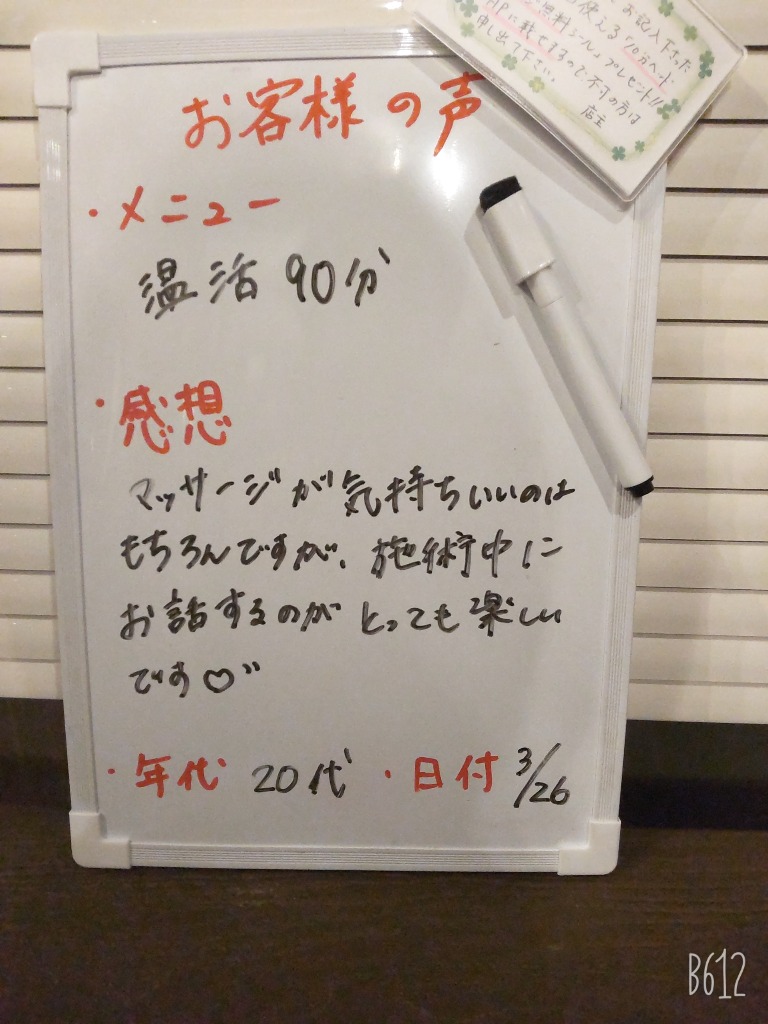 お記入下さった
使える70分ヘッド
無料シール」プレゼント!!
HPに載せるので、不可の方は
申し出て下さい。
店主
お客様の声
・メニュー
温活 90分
・感想
マッサージが気持ちいいのは
もちろんですが、施術中に
お話するのがとっても楽しい
です♡"
・年代 20代 ・日付 3/26
B612